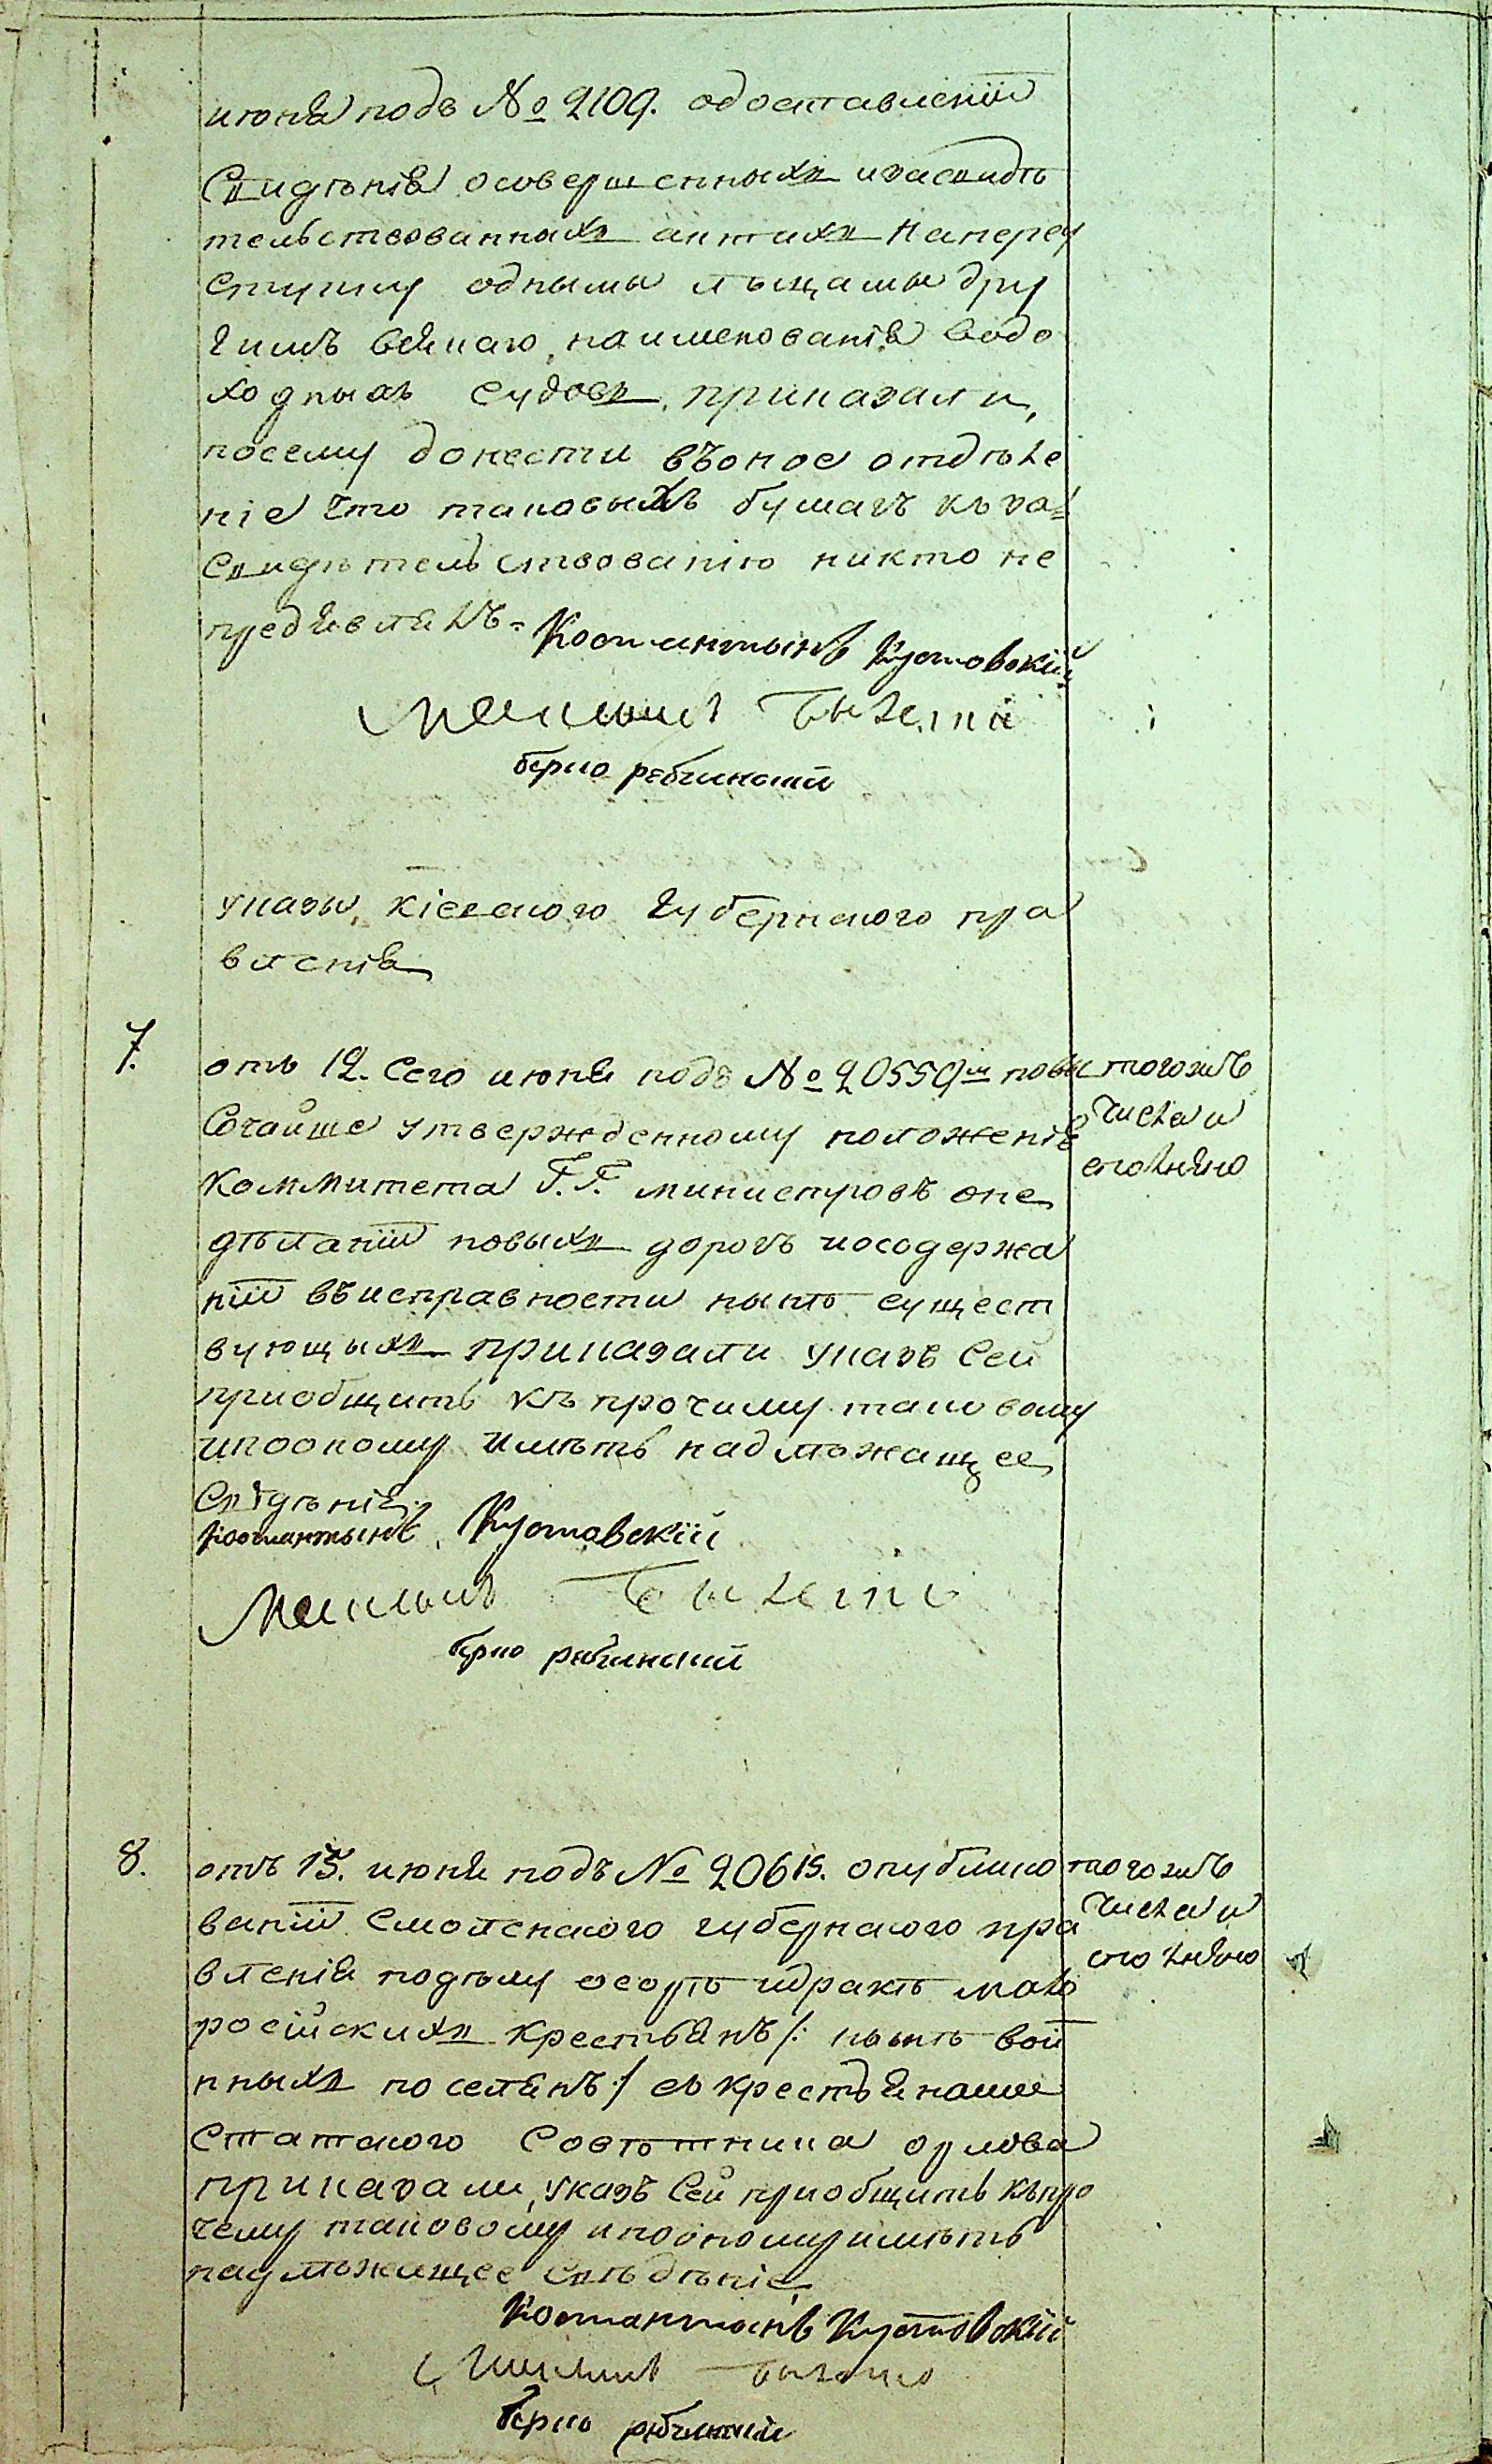 июня подъ № 2109. одоставленіи
Свидѣнія осовершенныхъ изасвидѣ
тельствованныхъ актахъ напереу
ступку одными лыцамы дру
гимъ всякаго наименованія водо
ходныхъ судовъ, приказали,
посему донести въоное отдѣле
ніе что таковыхъ бумагъ къ за=
свидѣтельствованію никто не
предъявлялъ.
Костантынъ Кустовскій
Максымъ
берко рабинскій
указы, кіевского губернского пра
вленія
7. отъ 12. Сего июня подъ № 20559м повы
Сочайше утвержденному положенію
Коммитета Г.Г. министровъ оне
дѣланіи новыхъ дорогъ иосодержа
ніи въисправности нынѣ сущест
вующихъ приказали указъ Сей
приобщить къ прочиму таковому
ипооному имѣть надлѣжащее
Свѣдѣніе.
тогожъ
числа и
сполнѣно
Костантынъ Кустовскій
Максымъ
берко рабинскій
8. отъ 15. июня подъ № 20615. опублико
ваніи Смоленского губернского пра
вленія подѣлу осорѣ идракѣ мало
російскихъ крестьянъ /: нынѣ воин
нныхъ поселянъ :/ съ крестьянами
Статского Совѣтника орлова
приказали, указъ Сей приобщить къпро
чему таковому ипооному имѣть
надлѣжащее свѣдѣніе,
тогожъ
числа и
сполнѣно
Костантынъ Кустовскій
Максымъ
берко рабинскій